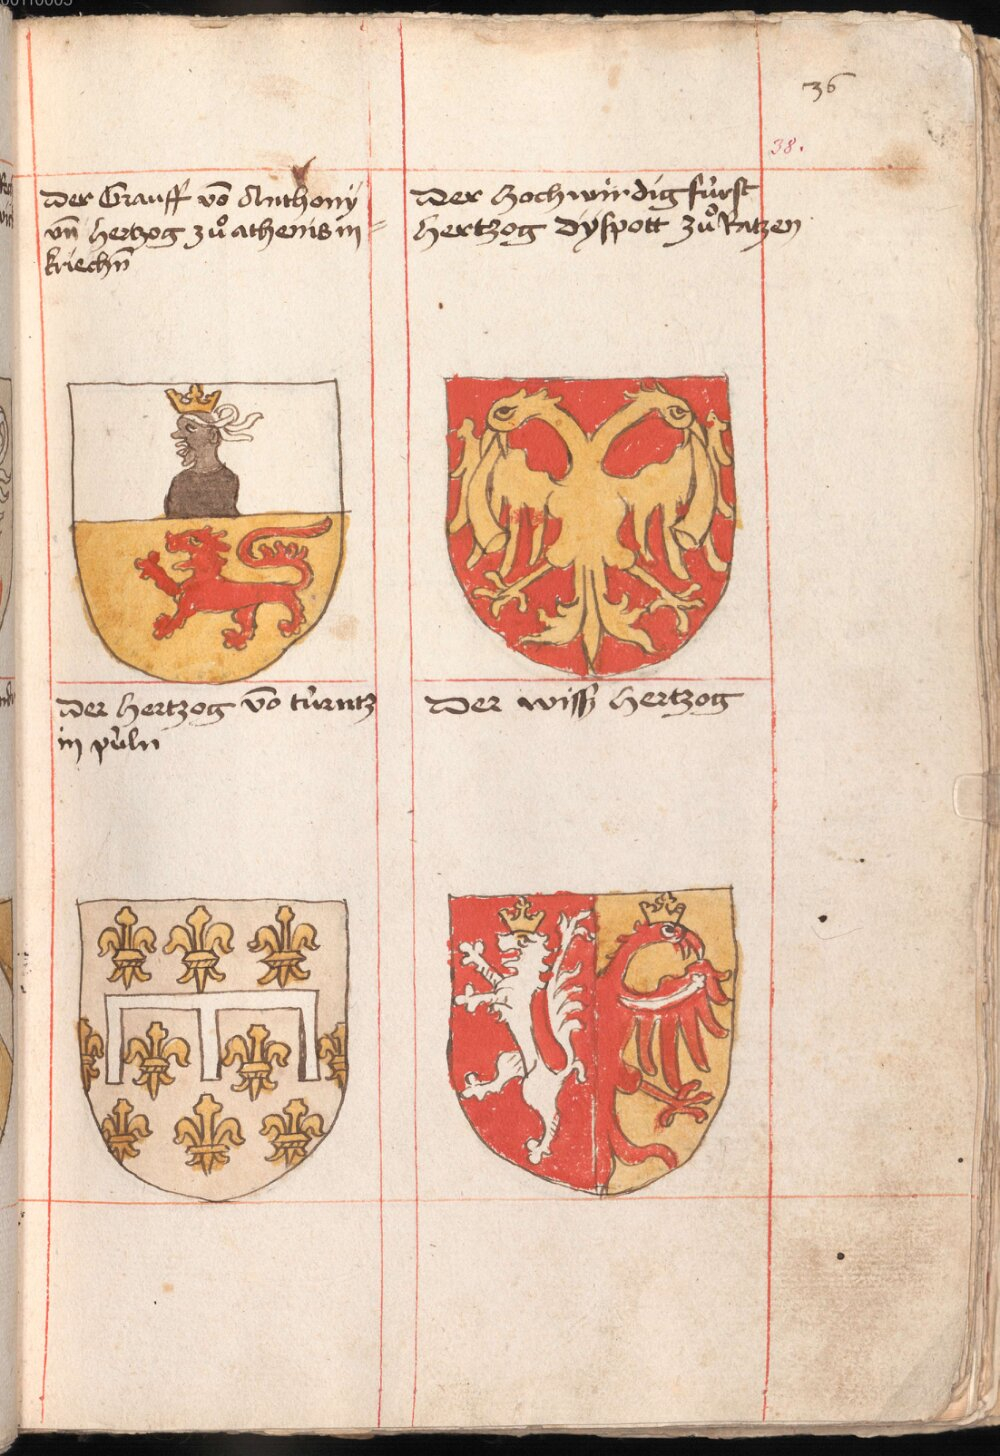 36
38.
Der Grauff vō Anthony
vn̄ hertzog zů athenis in
kriechn̄
Der Hochwirdig fürst
hertzog Dyspott zů Ratzen
Der hertzog vō türntz
in püln
Der wiss hertzog